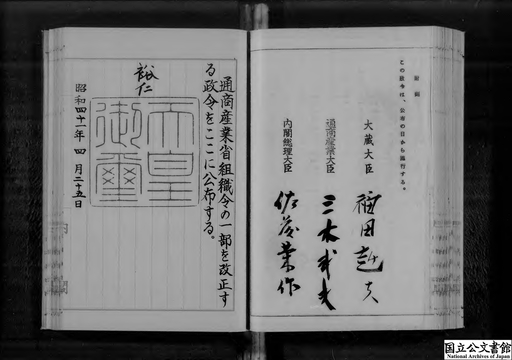 附則
この政令は、公布の日から施行する。
大蔵大臣
福田赳夫
通商産業大臣
三木武夫
内閣総理大臣
佐藤榮作
通商産業省組織令の一部を改正す
る政令をここに公布する。
裕仁
天皇
御璽
昭和四十一年四月二十五日
国立公文書館
National Archives of Japan